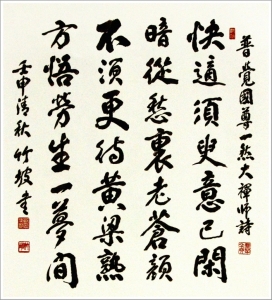 普覺國尊一然大禪師詩
快適須臾意已閑
暗從愁裏老蒼顏
不須更待黃粱熟
方悟勞生一夢間
壬申清秋 竹坡書